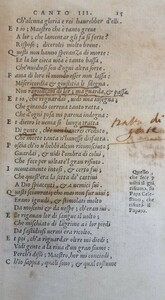 CANTO III. 15
Ch'alcuna gloria i rei haurebber d'elli.
E t io; Maestro che è tanto greue
A lor; che lamentar gli fa sì forte?
Rispose; dicerolti molto breue.
Questi non hanno speranza di morte:
E la lor cieca uita è tanto bassa;
Che 'nuidiosi son d'ogni altra sorte.
Fama di lor il mondo esser non lassa:
Misericordia & giustitia gli sdegna.
Non ragionam di lor; ma guarda, e passa.
E t io, che riguardai, uidi una insegna;
Che girando correua tanto ratta,
Che d'ogni posa mi pareua indegna:
E dietro le uenia sì lunga tratta
Di gente; ch'i non haurei creduto,
Che morte tanta n'hauesse disfatta.
Poscia ch'io u'hebbi alcun riconosciuto;
Guardai, e uidi l'ombra di colui,
Che fece per uiltate il gran rifiuto.
Incontanente intesi, e certo fui,
Che quest'era la setta d'i cattiui
A Dio spiacenti, & a nemici sui.
Questi sciaurati, che mai non fur uiui,
Erano ignudi, e stimolati molto
Da mosconi e da uespe, ch'erano iui.
Elle rigauan lor di sangue il uolto;
Che mischiato di lagrime a i lor piedi
Da fastidiosi uermi era ricolto.
E poi, ch'a riguardar oltre mi diedi;
Vidi gente a la riua d'un gran fiume:
Perch'i dissi; Maestro, hor mi concedi,
Ch'io sappia, quali sono, & qual costume
Questo,
che fece il
Papa Cele-
stino, che
rifiutò il
Papato.